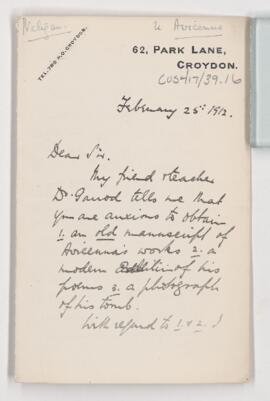 Neligan.
re Avicenna
TEL. 780 P.O. CROYDON.
62, PARK LANE,
CROYDON.
CUS417/39.16
February 25th 1912.
Dear Sir.
My friend & teacher
Dr. Garrod tells me that
you are anxious to obtain
1. an old manuscript of
Avicenna's works 2. a
modern edition of his
poems 3. a photograph
of his tomb.
With regard to 1 & 2. I